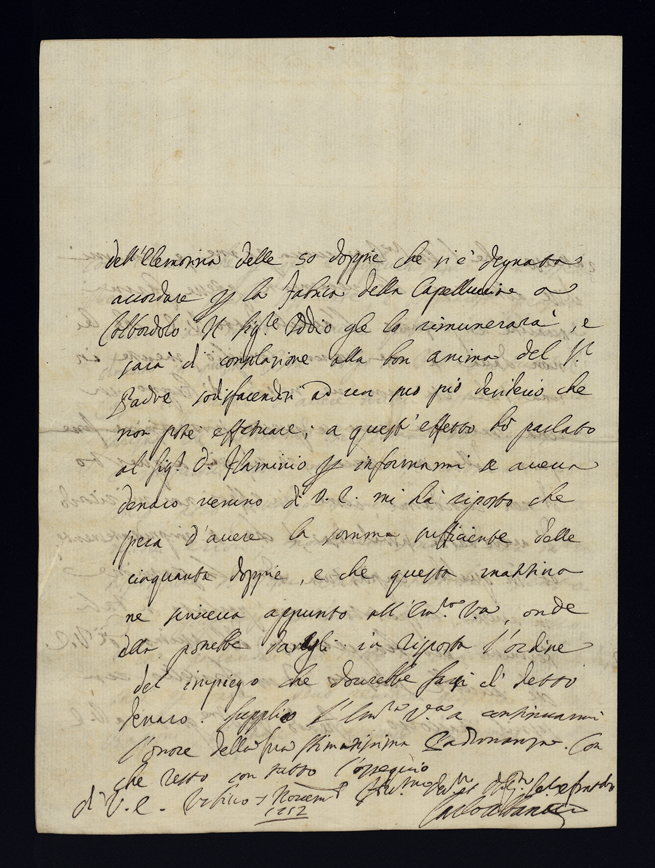 dell'Elemosina delle 50 doppie che si è degnata
accordare p la fabrica della Capellucine a
Colbordolo Il Sig.re Iddio gle lo rimunererà, e
sarà di consolazione alla bon anima del S.r
Padre sodisfacendosi ad un suo pio desiderio che
non potè effettuare; a quest'effetto hò parlato
al Sig.r D. Flaminio p informarmi se aveva
denaro nessuno di V. E. mi hà risposto che
spera d'avere la somma sufficiente delle
cinquanta doppie, e che questa mattina
ne scriveva appunto all' V.a, onde
ella potrebbe dargli in risposta l'ordine
del impiego che dovrebbe farsi di detto
denaro. Supplico l' V.a a continuarmi
l'onore della sua stimatissima Padronanza. Con
che resto con tutto l'ossequio
di V. E. Urbino 7 Novem
1752